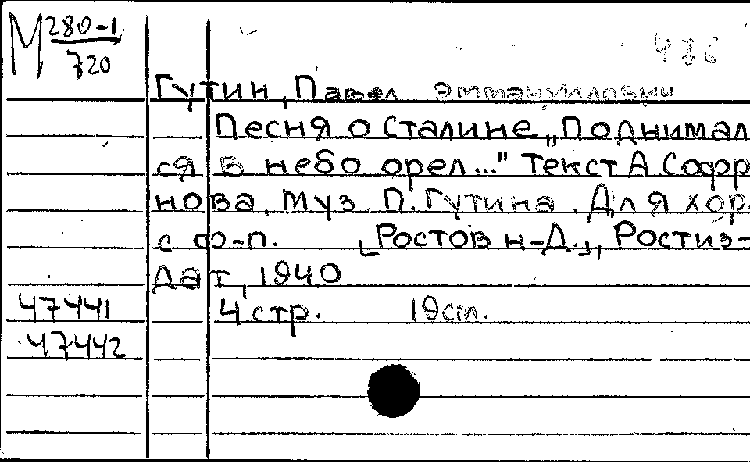 М 280-1
720
476
Гутин, Павел Эммануилович
Песня о Сталине „Поднимал
ся в небо орел..." Текст А. Софр
нова, муз. П. Гутина. Для хор
с ф-п. [Ростов н-Д.], Ростиз-
дат, 1940
47441 4 стр. 19 см.
47442